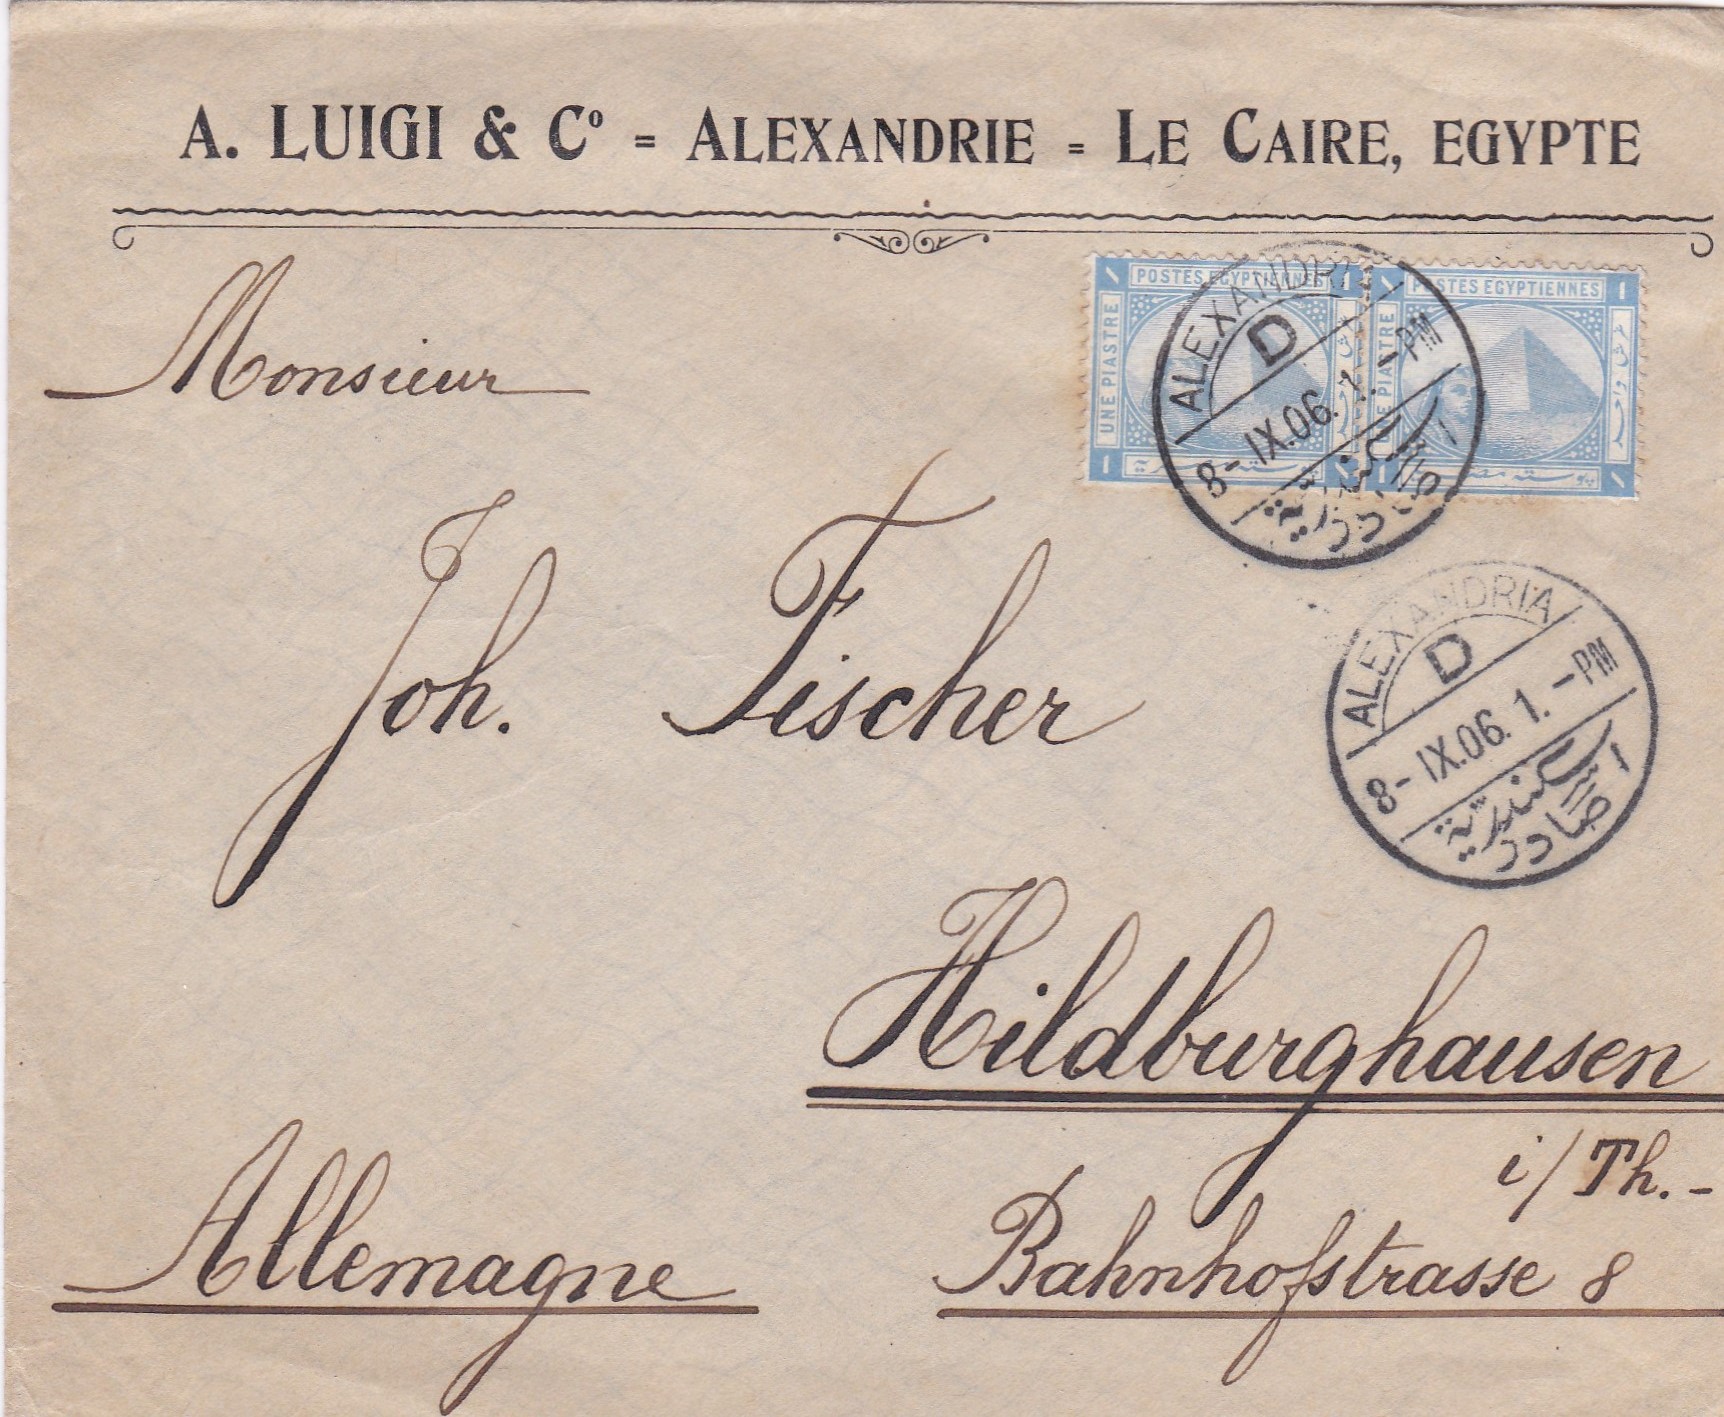 A. LUIGI & Cº = ALEXANDRIE = LE CAIRE, EGYPTE
POSTES EGYPTIENNES
UNE PIASTRE
POSTES EGYPTIENNES
UNE PIASTRE
غرش واحد
بوستة مصرية
ALEXANDRIA
D
8-IX.06. 1.-PM
اسكندرية
صادر
Monsieur
Joh. Fischer
ALEXANDRIA
D
8-IX.06. 1.-PM
اسكندرية
صادر
Hildburghausen
i/Th.-
Allemagne
Bahnhofstrasse 8